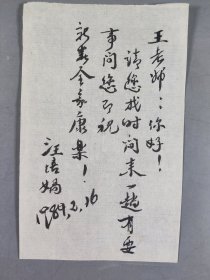 王老师：你好！
请您找时间来一趟有要
事问您即祝
新春全家康乐！
汪培娟
1984.2.16